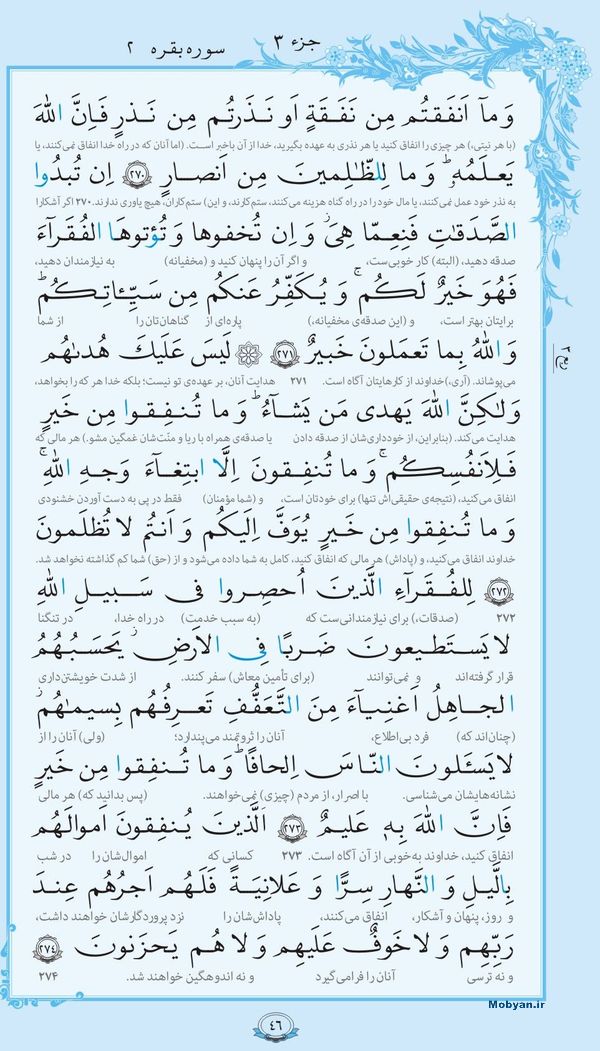 جزء ۳
سوره بقره ۲
وَ مآ اَنفَقتُم مِن نَفَقَةٍ اَو نَذَرتُم مِن نَذرٍ فَاِنَّ اللهَ
(با هر نیتی،) هر چیزی را انفاق کنید یا هر نذری به عهده بگیرید، خدا از آن باخبر است. (اما آنان که در راه خدا انفاق نمی‌کنند، یا
یَعلَمُهُۥ ۗ وَ ما لِلظّـٰلِمینَ مِن اَنصارٍ ﴿۲۷۰﴾ اِن تُبدُوا
به نذر خود عمل نمی‌کنند، یا مال خود را در راه گناه هزینه می‌کنند، ستم‌کارند، و این) ستم‌کاران، هیچ یاوری ندارند. ۲۷۰ اگر آشکارا
الصَّدَقـٰتِ فَنِعِمّا هِیَ ۖ وَ اِن تُخفوها وَ تُؤتوهَا الفُقَرآءَ
صدقه دهید، (البته) کار خوبی‌ست، و اگر آن را پنهان کنید و (مخفیانه) به نیازمندان دهید،
فَهُوَ خَیرٌ لَکُم ۚ وَ یُکَفِّرُ عَنکُم مِن سَیِّـٔاتِکُم ۗ
برایتان بهتر است، و (این صدقه‌ی مخفیانه،) پاره‌ای از گناهان‌تان را از شما
وَ اللهُ بِما تَعمَلونَ خَبیرٌ ﴿۲۷۱﴾ لَیسَ عَلَیکَ هُدىٰهُم
می‌پوشاند. (آری،) خداوند از کارهایتان آگاه است. ۲۷۱ هدایت آنان، بر عهده‌ی تو نیست؛ بلکه خدا هر که را بخواهد،
وَلـٰکِنَّ اللهَ یَهدی مَن یَشآءُ ۗ وَ ما تُنفِقوا مِن خَیرٍ
هدایت می‌کند. (بنابراین، از خودداری‌شان از صدقه دادن یا صدقه‌ی همراه با ریا و منّت‌شان غمگین مشو.) هر مالی که
فَلِاَنفُسِکُم ۚ وَ ما تُنفِقونَ اِلَّا ابتِغآءَ وَجهِ اللهِ ۚ
انفاق می‌کنید، (نتیجه‌ی حقیقی‌اش تنها) برای خودتان است، و (شما مؤمنان) فقط در پی به دست آوردن خشنودی
وَ ما تُنفِقوا مِن خَیرٍ یُوَفَّ اِلَیکُم وَ اَنتُم لا تُظلَمونَ
خداوند انفاق می‌کنید، و (پاداش) هر مالی که انفاق کنید، کامل به شما داده می‌شود و از (حق) شما کم گذاشته نخواهد شد.
﴿۲۷۲﴾ لِلفُقَرآءِ الَّذینَ اُحصِروا فی سَبیلِ اللهِ
۲۷۲ (صدقات،) برای نیازمندانی‌ست که (به سبب خدمت) در راه خدا، در تنگنا
لا یَستَطیعونَ ضَربًا فِی الاَرضِ یَحسَبُهُمُ
قرار گرفته‌اند و نمی‌توانند (برای تأمین معاش) سفر کنند. از شدت خویشتن‌داری
الجاهِلُ اَغنِیآءَ مِنَ التَّعَفُّفِ تَعرِفُهُم بِسیمـٰهُم
(چنان‌اند که) فرد بی‌اطلاع، آنان را ثروتمند می‌پندارد؛ (ولی) آنان را از
لا یَسـَٔلونَ النّاسَ اِلحافًا ۗ وَ ما تُنفِقوا مِن خَیرٍ
نشانه‌هایشان می‌شناسی. با اصرار، از مردم (چیزی) نمی‌خواهند. (پس بدانید که) هر مالی
فَاِنَّ اللهَ بِهٖ عَلیمٌ ﴿۲۷۳﴾ اَلَّذینَ یُنفِقونَ اَموالَهُم
انفاق کنید، خداوند به‌خوبی از آن آگاه است. ۲۷۳ کسانی که اموال‌شان را در شب
بِالَّیلِ وَ النَّهارِ سِرًّا وَ عَلانِیَةً فَلَهُم اَجرُهُم عِندَ
و روز، پنهان و آشکار، انفاق می‌کنند، پاداش‌شان را نزد پروردگارشان خواهند داشت،
رَبِّهِم وَ لا خَوفٌ عَلَیهِم وَ لا هُم یَحزَنونَ ﴿۲۷۴﴾
و نه ترسی آنان را فرا می‌گیرد و نه اندوهگین خواهند شد. ۲۷۴
Mobyan.ir
۴۶